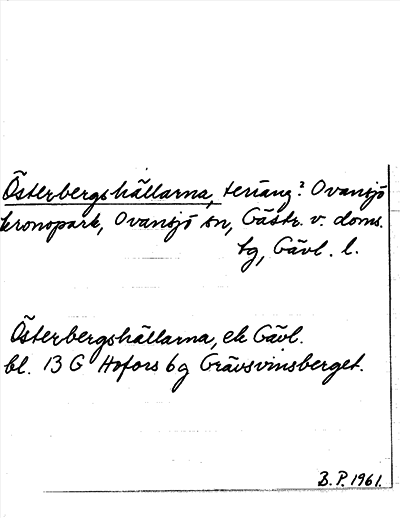 Österbergshällarna, teräng? Ovansjö
kronopark, Ovansjö sn, Gästr. v. doms.
tg, Gävl. l.
Österbergshällarna, ek Gävl.
bl. 13 G Hofors 6g Grävsvinsberget.
B. P. 1961.